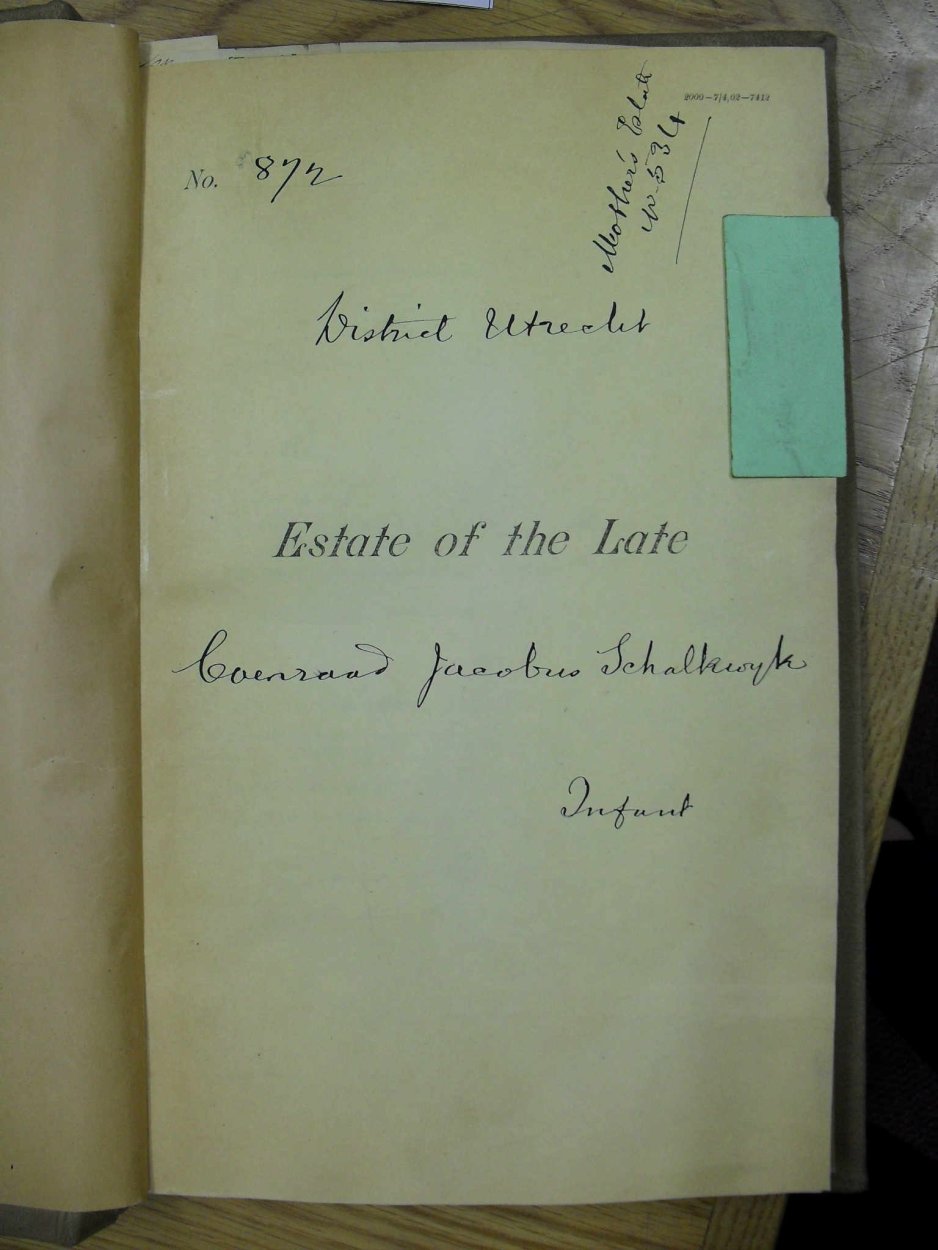 2000—7/4,02—7412
Mother's Estate
No 534
No. 872
District Utrecht
Estate of the Late
Coenraad Jacobus Schalkwyk
Infant